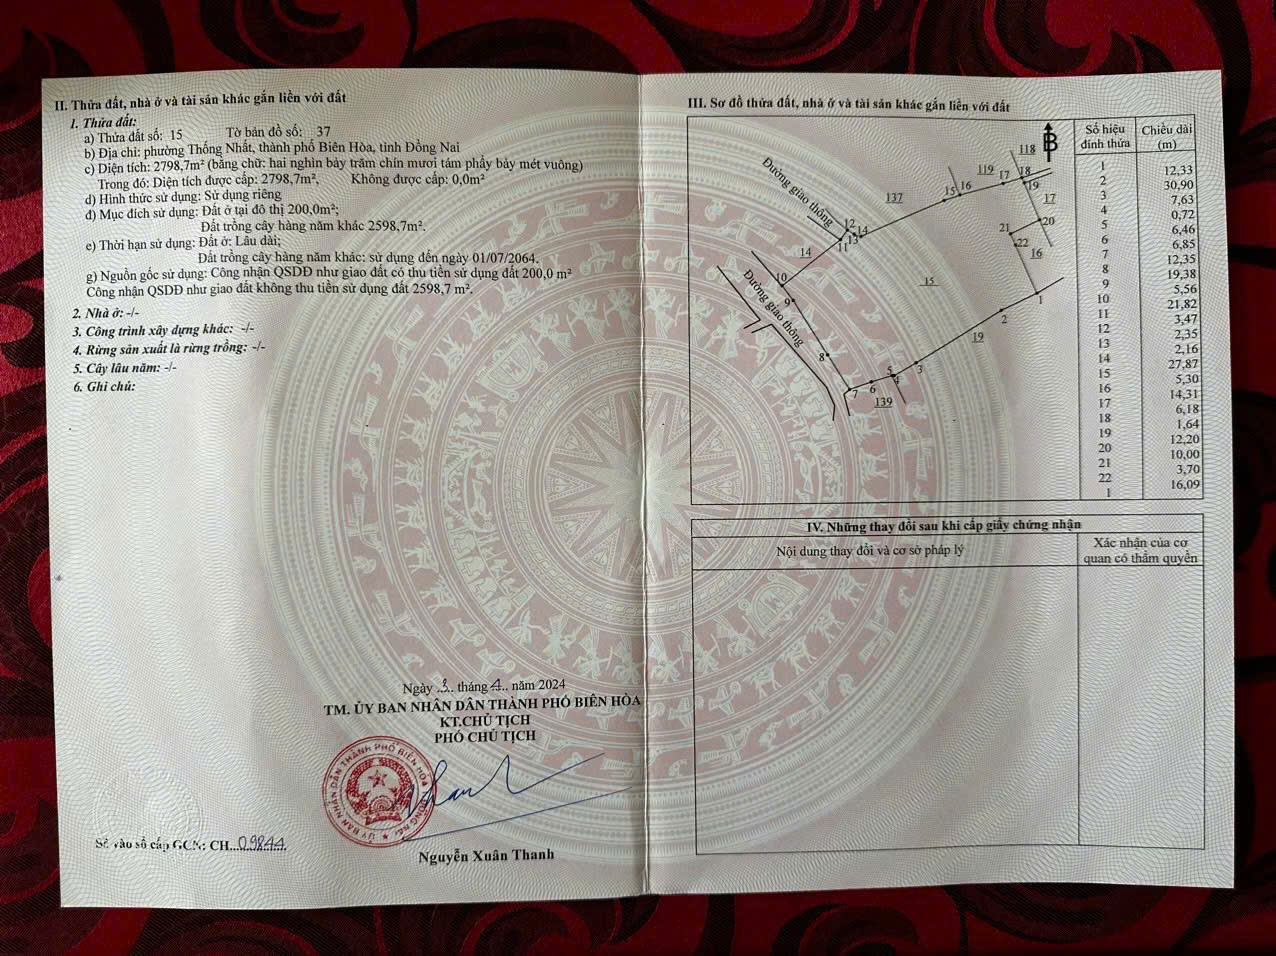 II. Thửa đất, nhà ở và tài sản khác gắn liền với đất
1. Thửa đất:
a) Thửa đất số: 15 Tờ bản đồ số: 37
b) Địa chỉ: phường Thống Nhất, thành phố Biên Hòa, tỉnh Đồng Nai
c) Diện tích: 2798,7m² (bằng chữ: hai nghìn bảy trăm chín mươi tám phẩy bảy mét vuông)
Trong đó: Diện tích được cấp: 2798,7m², Không được cấp: 0,0m²
d) Hình thức sử dụng: Sử dụng riêng
đ) Mục đích sử dụng: Đất ở tại đô thị 200,0m²;
Đất trồng cây hàng năm khác 2598,7m².
e) Thời hạn sử dụng: Đất ở: Lâu dài;
Đất trồng cây hàng năm khác: sử dụng đến ngày 01/07/2064.
g) Nguồn gốc sử dụng: Công nhận QSDĐ như giao đất có thu tiền sử dụng đất 200,0 m²
Công nhận QSDĐ như giao đất không thu tiền sử dụng đất 2598,7 m².
2. Nhà ở: -/-
3. Công trình xây dựng khác: -/-
4. Rừng sản xuất là rừng trồng: -/-
5. Cây lâu năm: -/-
6. Ghi chú:
Ngày 3 tháng 4 năm 2024
TM. ỦY BAN NHÂN DÂN THÀNH PHỐ BIÊN HÒA
KT.CHỦ TỊCH
PHÓ CHỦ TỊCH
ỦY BAN NHÂN DÂN THÀNH PHỐ BIÊN HÒA
Nguyễn Xuân Thanh
Số vào sổ cấp GCN: CH...09844
III. Sơ đồ thửa đất, nhà ở và tài sản khác gắn liền với đất
B
118
119
17
18
19
15
16
137
17
Đường giao thông
12
14
13
11
20
21
22
16
14
10
15
Đường giao thông
9
1
2
19
8
3
5
4
6
7
139
Số hiệu đỉnh thửa
Chiều dài (m)
1
12,33
2
30,90
3
7,63
4
0,72
5
6,46
6
6,85
7
12,35
8
19,38
9
5,56
10
21,82
11
3,47
12
2,35
13
2,16
14
27,87
15
5,30
16
14,31
17
6,18
18
1,64
19
12,20
20
10,00
21
3,70
22
16,09
1
IV. Những thay đổi sau khi cấp giấy chứng nhận
Nội dung thay đổi và cơ sở pháp lý
Xác nhận của cơ
quan có thẩm quyền